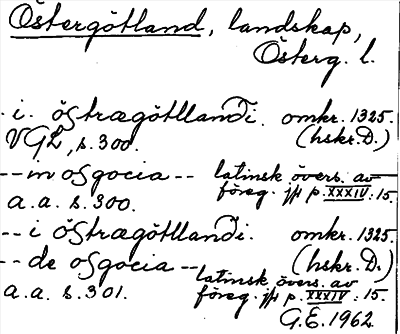 Östergötland, landskap,
Österg. l.
- i. östrægötllandi. omkr. 1325.
VGL, s. 300. (hskr. D.)
-- in osgocia -- latinsk övers. av
föreg. jfr p. XXXIV: 15.
a.a. s. 300.
-- i östrægötllandi. omkr. 1325.
(hskr. D.)
-- de osgocia -- latinsk övers. av
a.a. s. 301. föreg. jfr p. XXXIV: 15.
G.E. 1962.